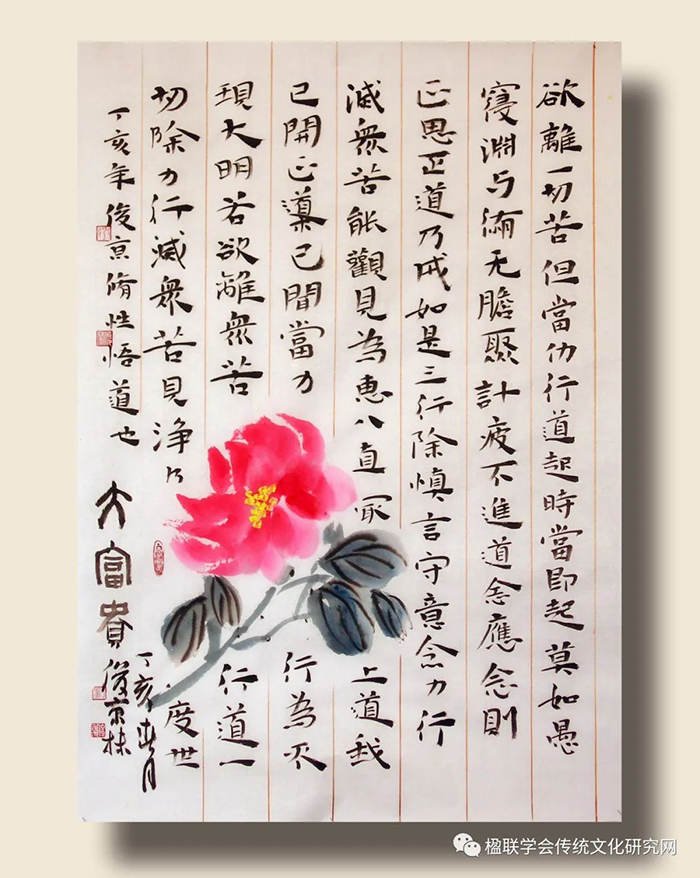 欲離一切苦但當仂行道起時當即起莫如愚
寑淵与滿无瞻聚計疲不進道念應念則
正思正道乃成如是三行除慎言守意念力行
減衆苦能觀見為惠八直冣上道我
已開正導已間當力行為不
現大明若欲離衆苦行道一
切除力行減衆苦見浄乃度世
丁亥年俊京脩性悟道也
大富貴
丁亥春月
俊京抹
楹联学会传统文化研究网